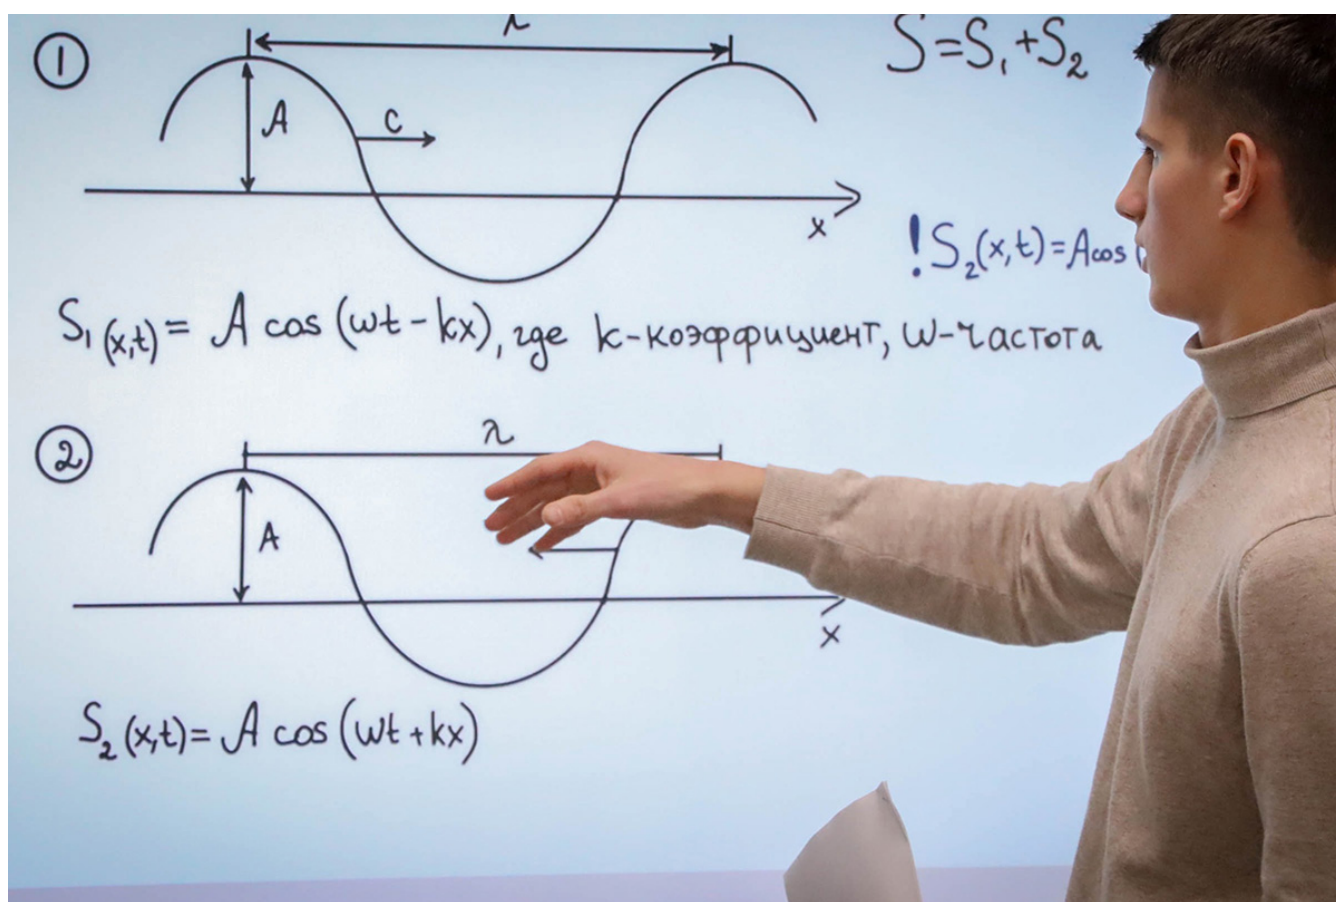 ①
λ
A
c
x
S=S₁+S₂
!S₂(x,t)=Acos (
S₁(x,t)= A cos (ωt-kx), где k-коэффициент, ω-частота
②
λ
A
x
S₂(x,t)= A cos (ωt+kx)